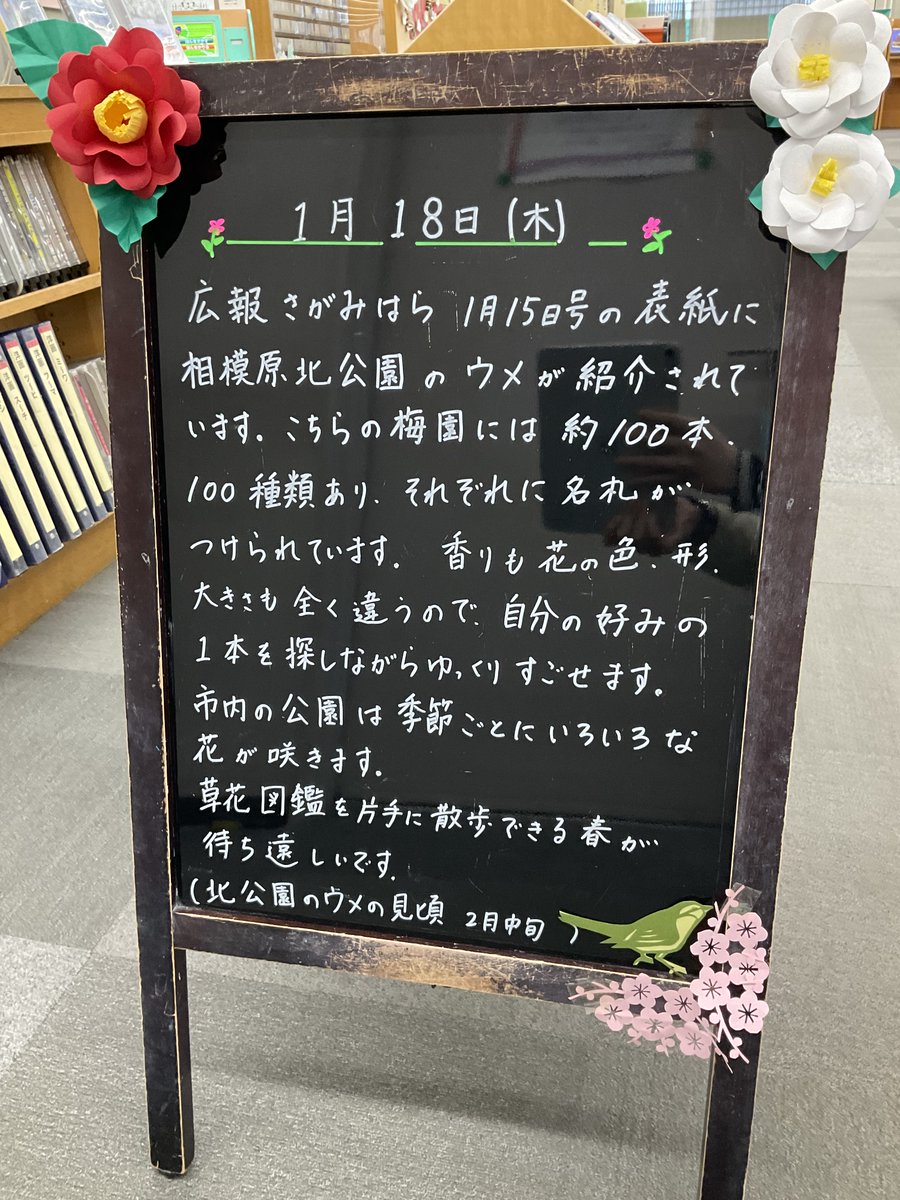 1月18日(木)
広報さがみはら 1月15日号の表紙に
相模原北公園のウメが紹介されて
います。こちらの梅園には約100本、
100種類あり、それぞれに名札が
つけられています。香りも花の色、形、
大きさも全く違うので、自分の好みの
1本を探しながらゆっくりすごせます。
市内の公園は季節ごとにいろいろな
花が咲きます。
草花図鑑を片手に散歩できる春が
待ち遠しいです。
(北公園のウメの見頃 2月中旬)